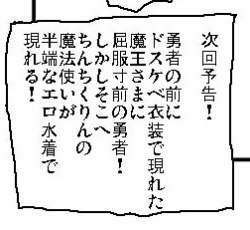 次回予告！
勇者の前に
ドスケベ衣装で現れた
魔王さまに
屈服寸前の勇者！
しかしそこへ
ちんちくりんの
魔法使いが
半端なエロ水着で
現れる！